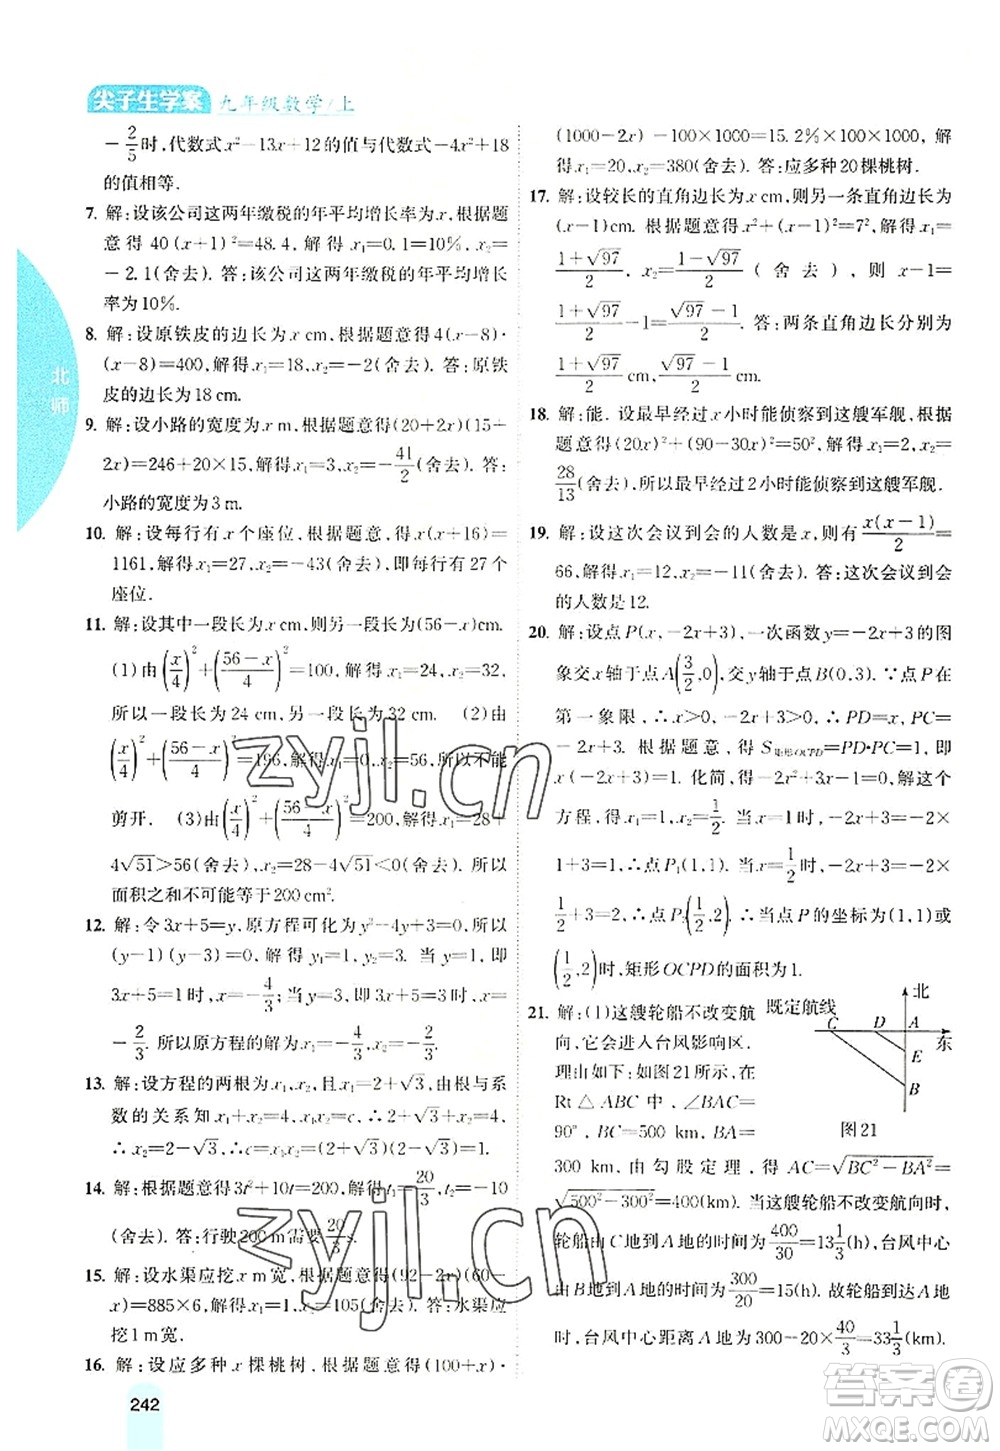 尖子生学案 九年级数学/上
-2/5时,代数式x²-13x+12的值与代数式-4x²+18
的值相等.
7. 解:设该公司这两年缴税的年平均增长率为x,根据题
意得 40(x+1)²=48.4,解得x₁=0.1=10%,x₂=
-2.1(舍去).答:该公司这两年缴税的年平均增长
率为10%.
8. 解:设原铁皮的边长为x cm,根据题意得4(x-8)·
(x-8)=400,解得x₁=18,x₂=-2(舍去).答:原铁
皮的边长为18 cm.
9. 解:设小路的宽度为x m,根据题意得(20+2x)(15+
2x)=246+20×15,解得x₁=3,x₂=-41/2(舍去).答:
小路的宽度为3 m.
10. 解:设每行有x个座位,根据题意,得x(x+16)=
1161,解得x₁=27,x₂=-43(舍去),即每行有27个
座位.
11. 解:设其中一段长为x cm,则另一段长为(56-x)cm.
(1)由(x/4)²+((56-x)/4)²=100,解得x₁=24,x₂=32,
所以一段长为24 cm,另一段长为32 cm. (2)由
(x/4)²+((56-x)/4)²=196,解得x₁=0,x₂=56,所以不能
剪开. (3)由(x/4)²+((56-x)/4)²=200,解得x₁=28+
4√51>56(舍去),x₂=28-4√51<0(舍去).所以
面积之和不可能等于200 cm².
12. 解:令3x+5=y,原方程可化为y²-4y+3=0,所以
(y-1)(y-3)=0,解得y₁=1,y₂=3.当y=1,即
3x+5=1时,解得x=-4/3;当y=3,即3x+5=3时,x=
-2/3.所以原方程的解为x₁=-4/3,x₂=-2/3.
13. 解:设方程的两根为x₁,x₂,其中x₁=2+√3,由根与系
数的关系知x₁+x₂=4,x₁x₂=c,∴2+√3+x₂=4,
∴x₂=2-√3,∴c=x₁x₂=(2+√3)(2-√3)=1.
14. 解:根据题意得3t²+10t=200,解得t₁=20/3,t₂=-10
(舍去).答:行驶200 m需要20/3 s.
15. 解:设水渠应挖x m宽,根据题意得(92-2x)(60-
x)=885×6,解得x₁=1,x₂=105(舍去).答:水渠应
挖1 m宽.
16. 解:设应多种x棵桃树,根据题意得(100+x)·
(1000-2x)-100×1000=15.2%×100×1000,解
得x₁=20,x₂=380(舍去).答:应多种20棵桃树.
17. 解:设较长的直角边长为x cm,则另一条直角边长为
(x-1)cm.根据题意得x²+(x-1)²=7²,解得x₁=
(1+√97)/2,x₂=(1-√97)/2(舍去),则x-1=
(1+√97)/2-1=(√97-1)/2.答:两条直角边长分别为
(1+√97)/2 cm,(√97-1)/2 cm.
18. 解:能.设最早经过x小时能侦察到这艘军舰,根据
题意得(20x)²+(90-30x)²=50²,解得x₁=2,x₂=
28/13(舍去),所以最早经过2小时能侦察到这艘军舰.
19. 解:设这次会议到会的人数是x,则有x(x-1)/2=
66,解得x₁=12,x₂=-11(舍去).答:这次会议到会
的人数是12.
20. 解:设点P(x,-2x+3),一次函数y=-2x+3的图
象交x轴于点A(3/2,0),交y轴于点B(0,3).∵点P在
第一象限,∴x>0,-2x+3>0,∴PD=x,PC=
-2x+3.根据题意,得S矩形OCPD=PD·PC=1,即
x(-2x+3)=1.化简,得2x²-3x+1=0,解这个
方程,得x₁=1,x₂=1/2.当x=1时,-2x+3=-2×
1+3=1,∴点P₁(1,1).当x=1/2时,-2x+3=-2×
1/2+3=2,∴点P₂(1/2,2).∴当点P的坐标为(1,1)或
(1/2,2)时,矩形OCPD的面积为1.
21. 解:(1)这艘轮船不改变航
向,它会进入台风影响区.
理由如下:如图21,在
Rt△ABC中,∠BAC=
90°,BC=500 km,BA=
300 km,由勾股定理,得AC=√(BC²-BA²)=
√(500²-300²)=400(km).当这艘轮船不改变航向时,
轮船由C地到A地的时间为400/30=13 1/3(h),台风中心
由B地到A地的时间为300/20=15(h).故轮船到A地
时,台风中心距离A地为300-20×40/3=33 1/3(km),
既定航线 北
C D A 东
E
B
图21
北师
zyjl.cn
zyjl.cn
答案圈
MXQE.COM
242